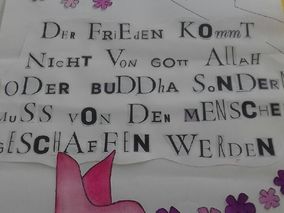 Der Frieden kommt
nicht von Gott Allah
oder Buddha sonder
muss von den Mensche
geschaffen werden